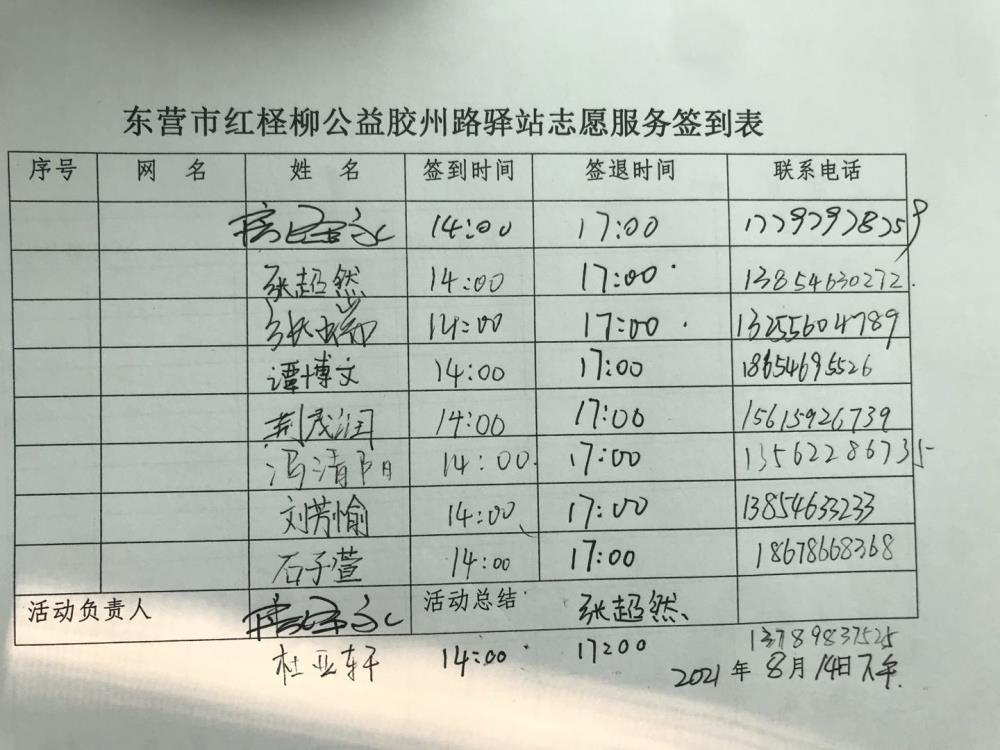 东营市红柽柳公益胶州路驿站志愿服务签到表
序号 网 名 姓 名 签到时间 签退时间 联系电话
14:00 17:00 17797978259
张超然 14:00 17:00 13854630272
14:00 17:00 13255604789
谭博文 14:00 17:00 18654695526
荆茂润 14:00 17:00 15615926739
冯清阳 14:00 17:00 13562286735
刘芳愉 14:00 17:00 13854633233
石子萱 14:00 17:00 18678668368
活动负责人 活动总结 张超然
杜亚轩 14:00 17:00 13789837525
2021年8月14日下午